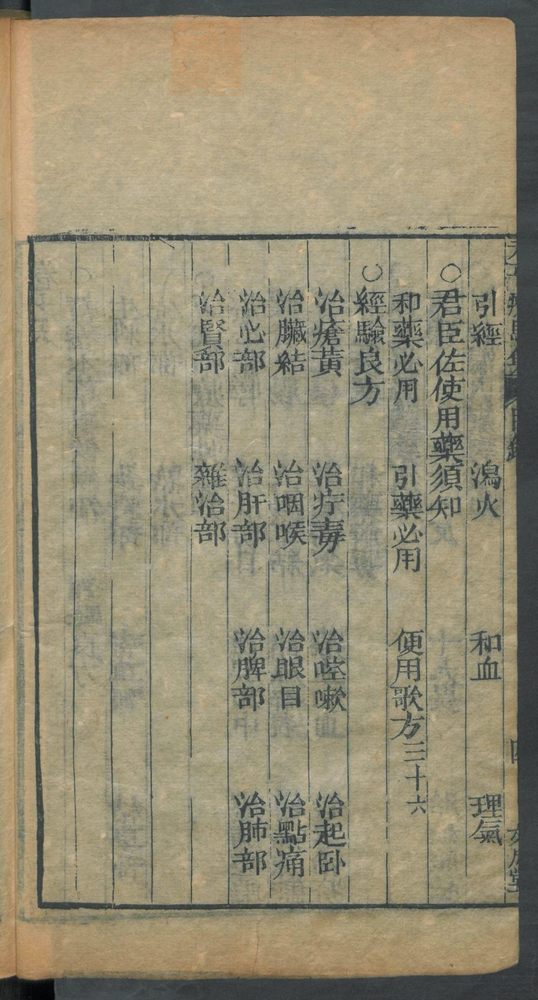 引經　瀉火　和血　理氣
〇君臣佐使用藥須知
和藥必用　引藥必用　便用歌方三十六
〇經驗良方
治瘡黃　治疔毒　治啌嗽　治起卧
治臟結　治咽喉　治眼目　治點痛
治心部　治肝部　治脾部　治肺部
治腎部　雜治部